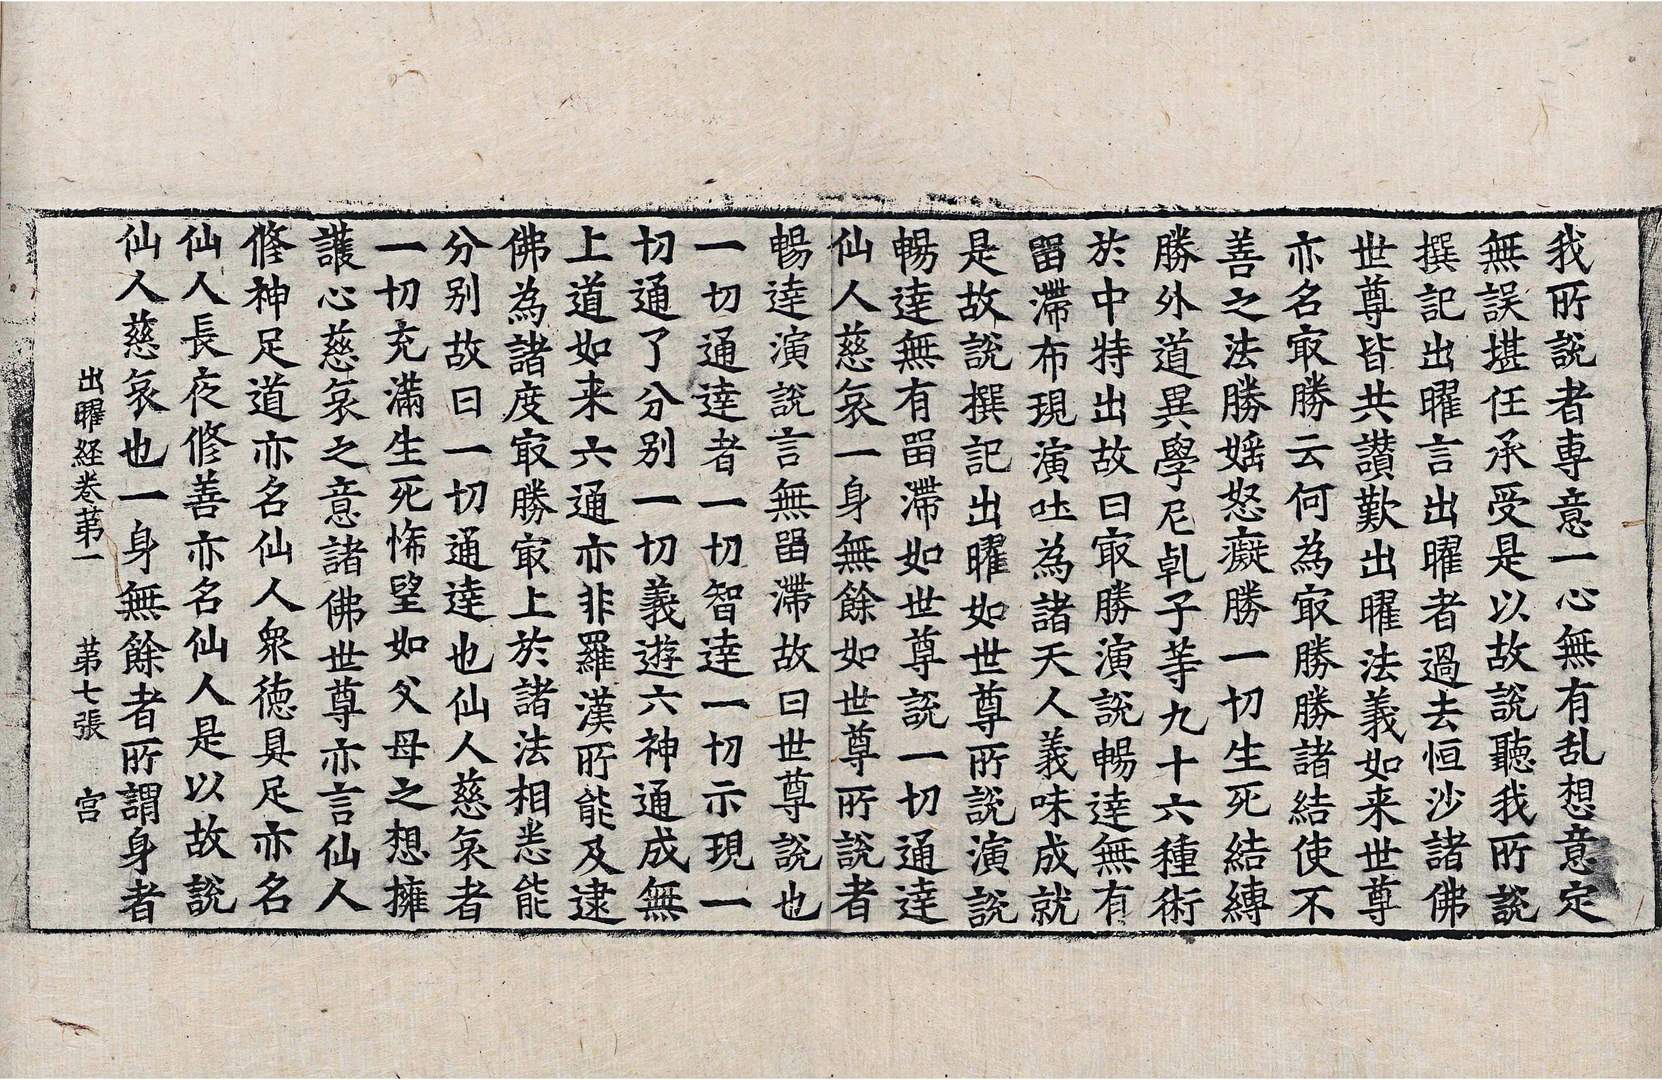 我所說者専意一心無有乱想意定
無誤堪任承受是以故說聽我所說
撰記出曜言出曜者過去恒沙諸佛
世尊皆共讃歎出曜法義如来世尊
亦名㝡勝云何為㝡勝勝諸結使不
善之法勝婬怒癡勝一切生死結縛
勝外道異學尼乹子䓁九十六種術
於中特出故曰㝡勝演說暢逹無有
畱滯布現演吐為諸天人義味成就
是故說撰記出曜如世尊所說演說
暢逹無有畱滯如世尊說一切通逹
仙人慈哀一身無餘如世尊所說者
暢逹演說言無畱滯故曰世尊說也
一切通逹者一切智逹一切示現一
切通了分别一切義遊六神通成無
上道如来六通亦非羅漢所能及逮
佛為諸度㝡勝㝡上於諸法相悉能
分别故曰一切通逹也仙人慈哀者
一切充滿生死悕望如父母之想擁
護心慈哀之意諸佛世尊亦言仙人
修神足道亦名仙人衆徳具足亦名
仙人長夜修善亦名仙人是以故說
仙人慈哀也一身無餘者所謂身者
出曜経巻苐一 苐七張 宫